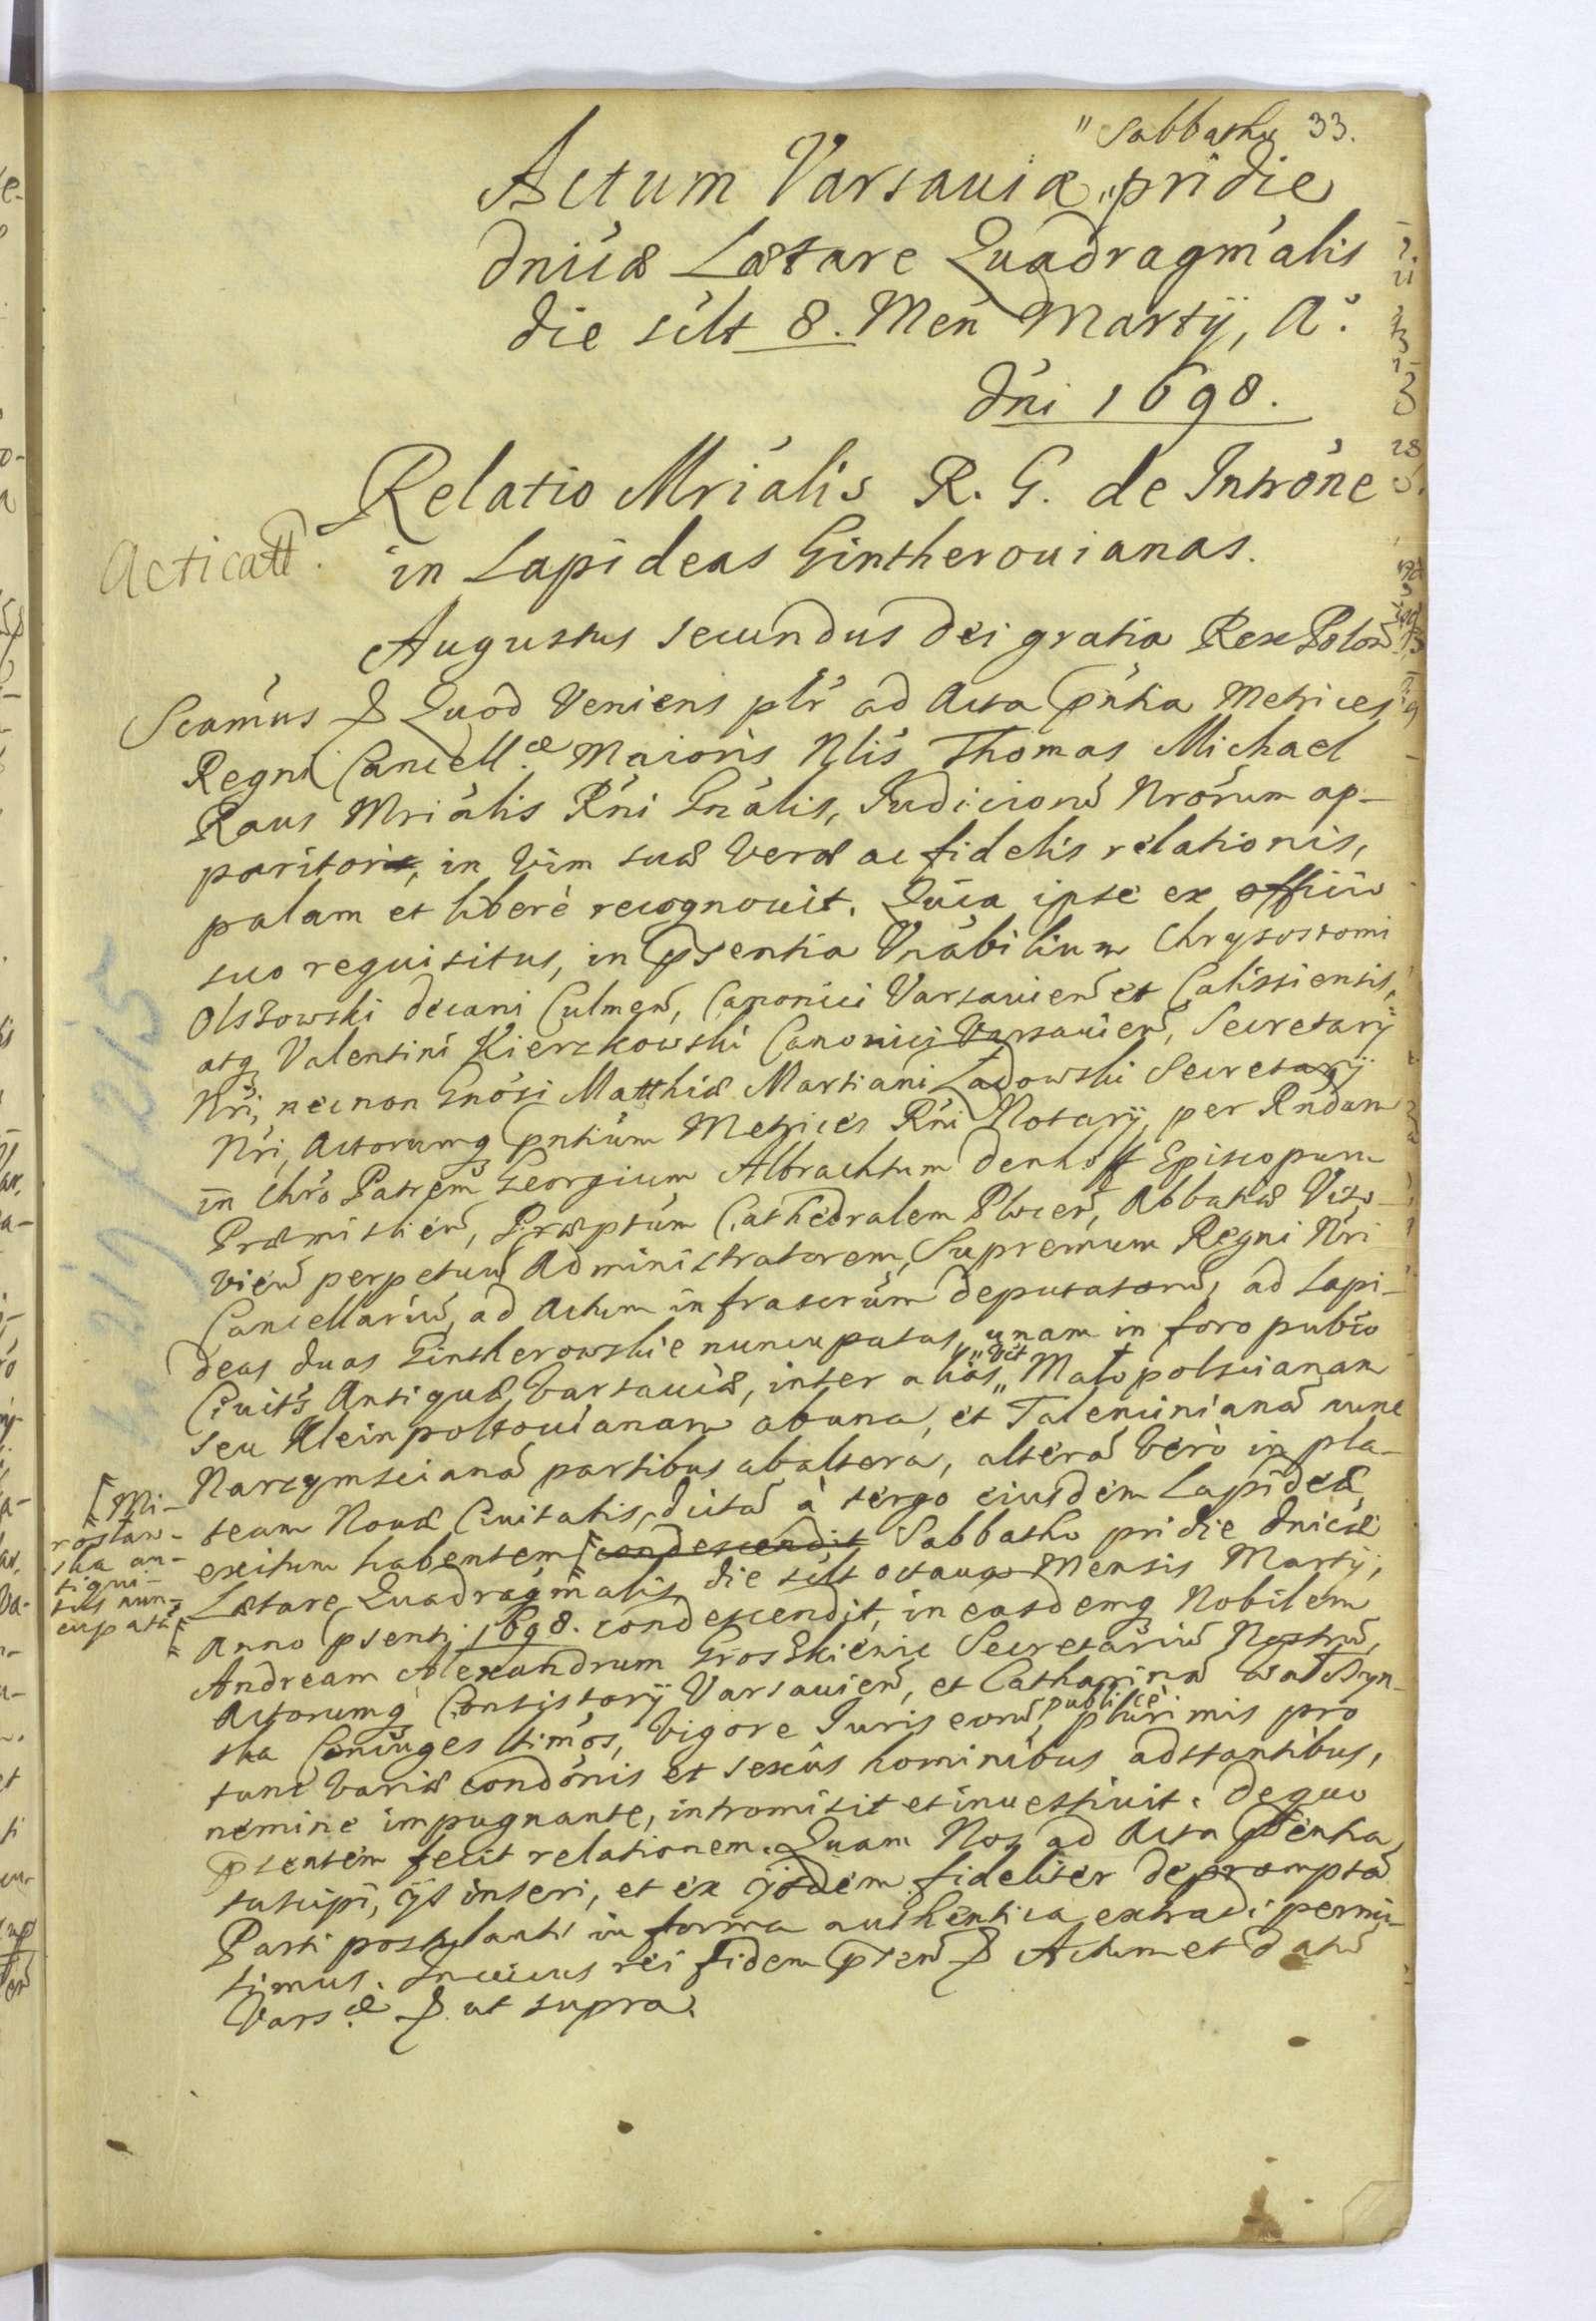 " Sabbatho 33.
Actum Varsauiæ " pridie
Dnicæ Lætare Quadragmalis
die silt 8. Men Martij, A°.
Dni 1698.
Relatio Mrialis R. G. de Introne
in Lapideas Gintherouianas.
Acticatt.
Augustus secundus Dei gratia Rex Polon
Scamus & Quod Veniens plr ad Acta pntia Metrices
Regni Cancell.æ Maioris Nlis Thomas Michael
Raus Mrialis Rni Gnalis, Judiciorū Nrorum ap-
paritor, in Vim suæ Veræ ac fidelis relationis,
palam et liberè recognouit. Quia ipse ex officio
suo requisitus, in Psentia Vnabilium Chrysostomi
Olszowski Decani Culmen, Canonici Varsauien et Calissiensis,
atq Valentini Kierzkowski Canonici Varsauien, Secretarij
Nri, necnon Gnosi Matthiæ Martiani Ladowski Secretarij
Nri, Actorumq Pntium Metrices Rni Notarij, per Rndum
in Chro Patrem Georgium Albrachtum Denhoff Episcopum
Præmislien, Præptum Cathedralem Plocen, Abbatiæ Vito-
vien perpetuū Administratorem, Supremum Regni Nri
Cancellariū, ad Actum infrascrum deputatorū, ad Lapi-
deas duas Gintherowskie nuncupatas, unam in foro publco
Ciuits Antiquæ Varsauiæ, inter alias " " Vit Malopolscianam
seu Kleinpoltouianam abuna, et Taleninianā nunc
Narzymscianā partibus abaltera, alterā verò in pla-
team Nouæ Ciuitatis, dictā à tergo eiusdem Lapideæ,
exitum habentem [ condescendit Sabbatho pridie Dnicæ
[ Mi-
rostaw-
ska an-
tiqui-
tus nun-
cupatā [
Lætare Quadragmalis, die silt octaua Mensis Martij,
Anno Psenti 1698. condescendit, in easdemq Nobilem
Andream Alexandrum Groszkiewic Secretariū Nostrū,
Actorumq Consistorij Varsauien, et Catharinā
ska Coniuges ltimos, Vigore Juris eorū, publicè plurimis pro
tunc Variæ condonis et sexûs hominibus adstantibus,
nemine impugnante, intromisit et inuestiuit. De quo
Psentem fecit relationem. Quam Nos ad Acta Psentia
suscipi, ijs inseri, et ex ijsdem fideliter depromptā
Parti postulanti in forma authentica extradi permit-
timus. In cuius rei fidem Psen & Actum et datū
Vars.æ & ut supra.